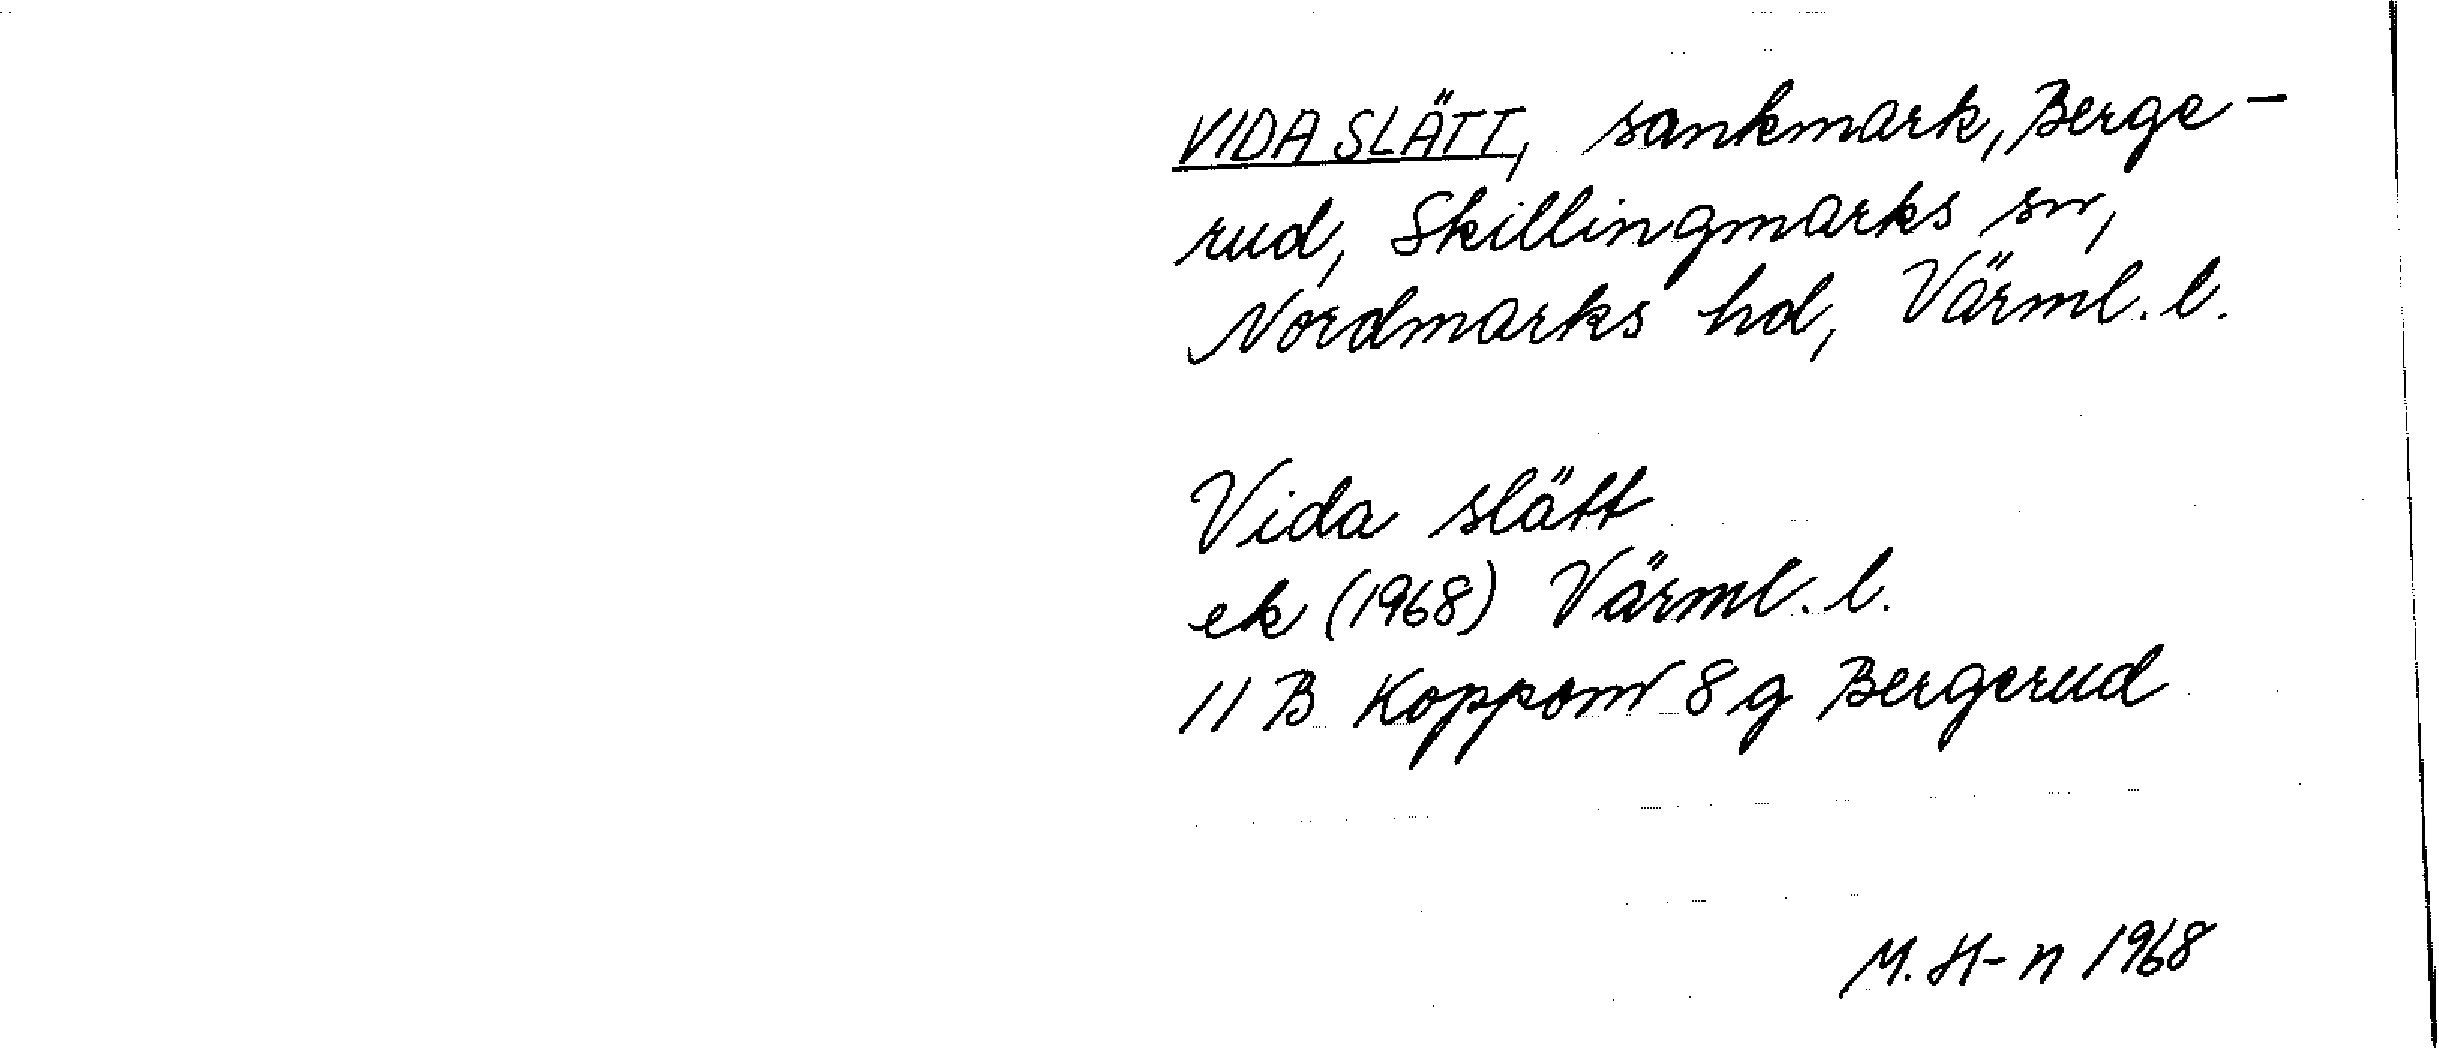 VIDA SLÄTT, sankmark, Berge-
rud, Skillingmarks sn,
Nordmarks hd, Värml. l.
Vida slätt
ek (1968) Värml. l.
11 B Koppom 8 g Bergerud
M. H-n 1968